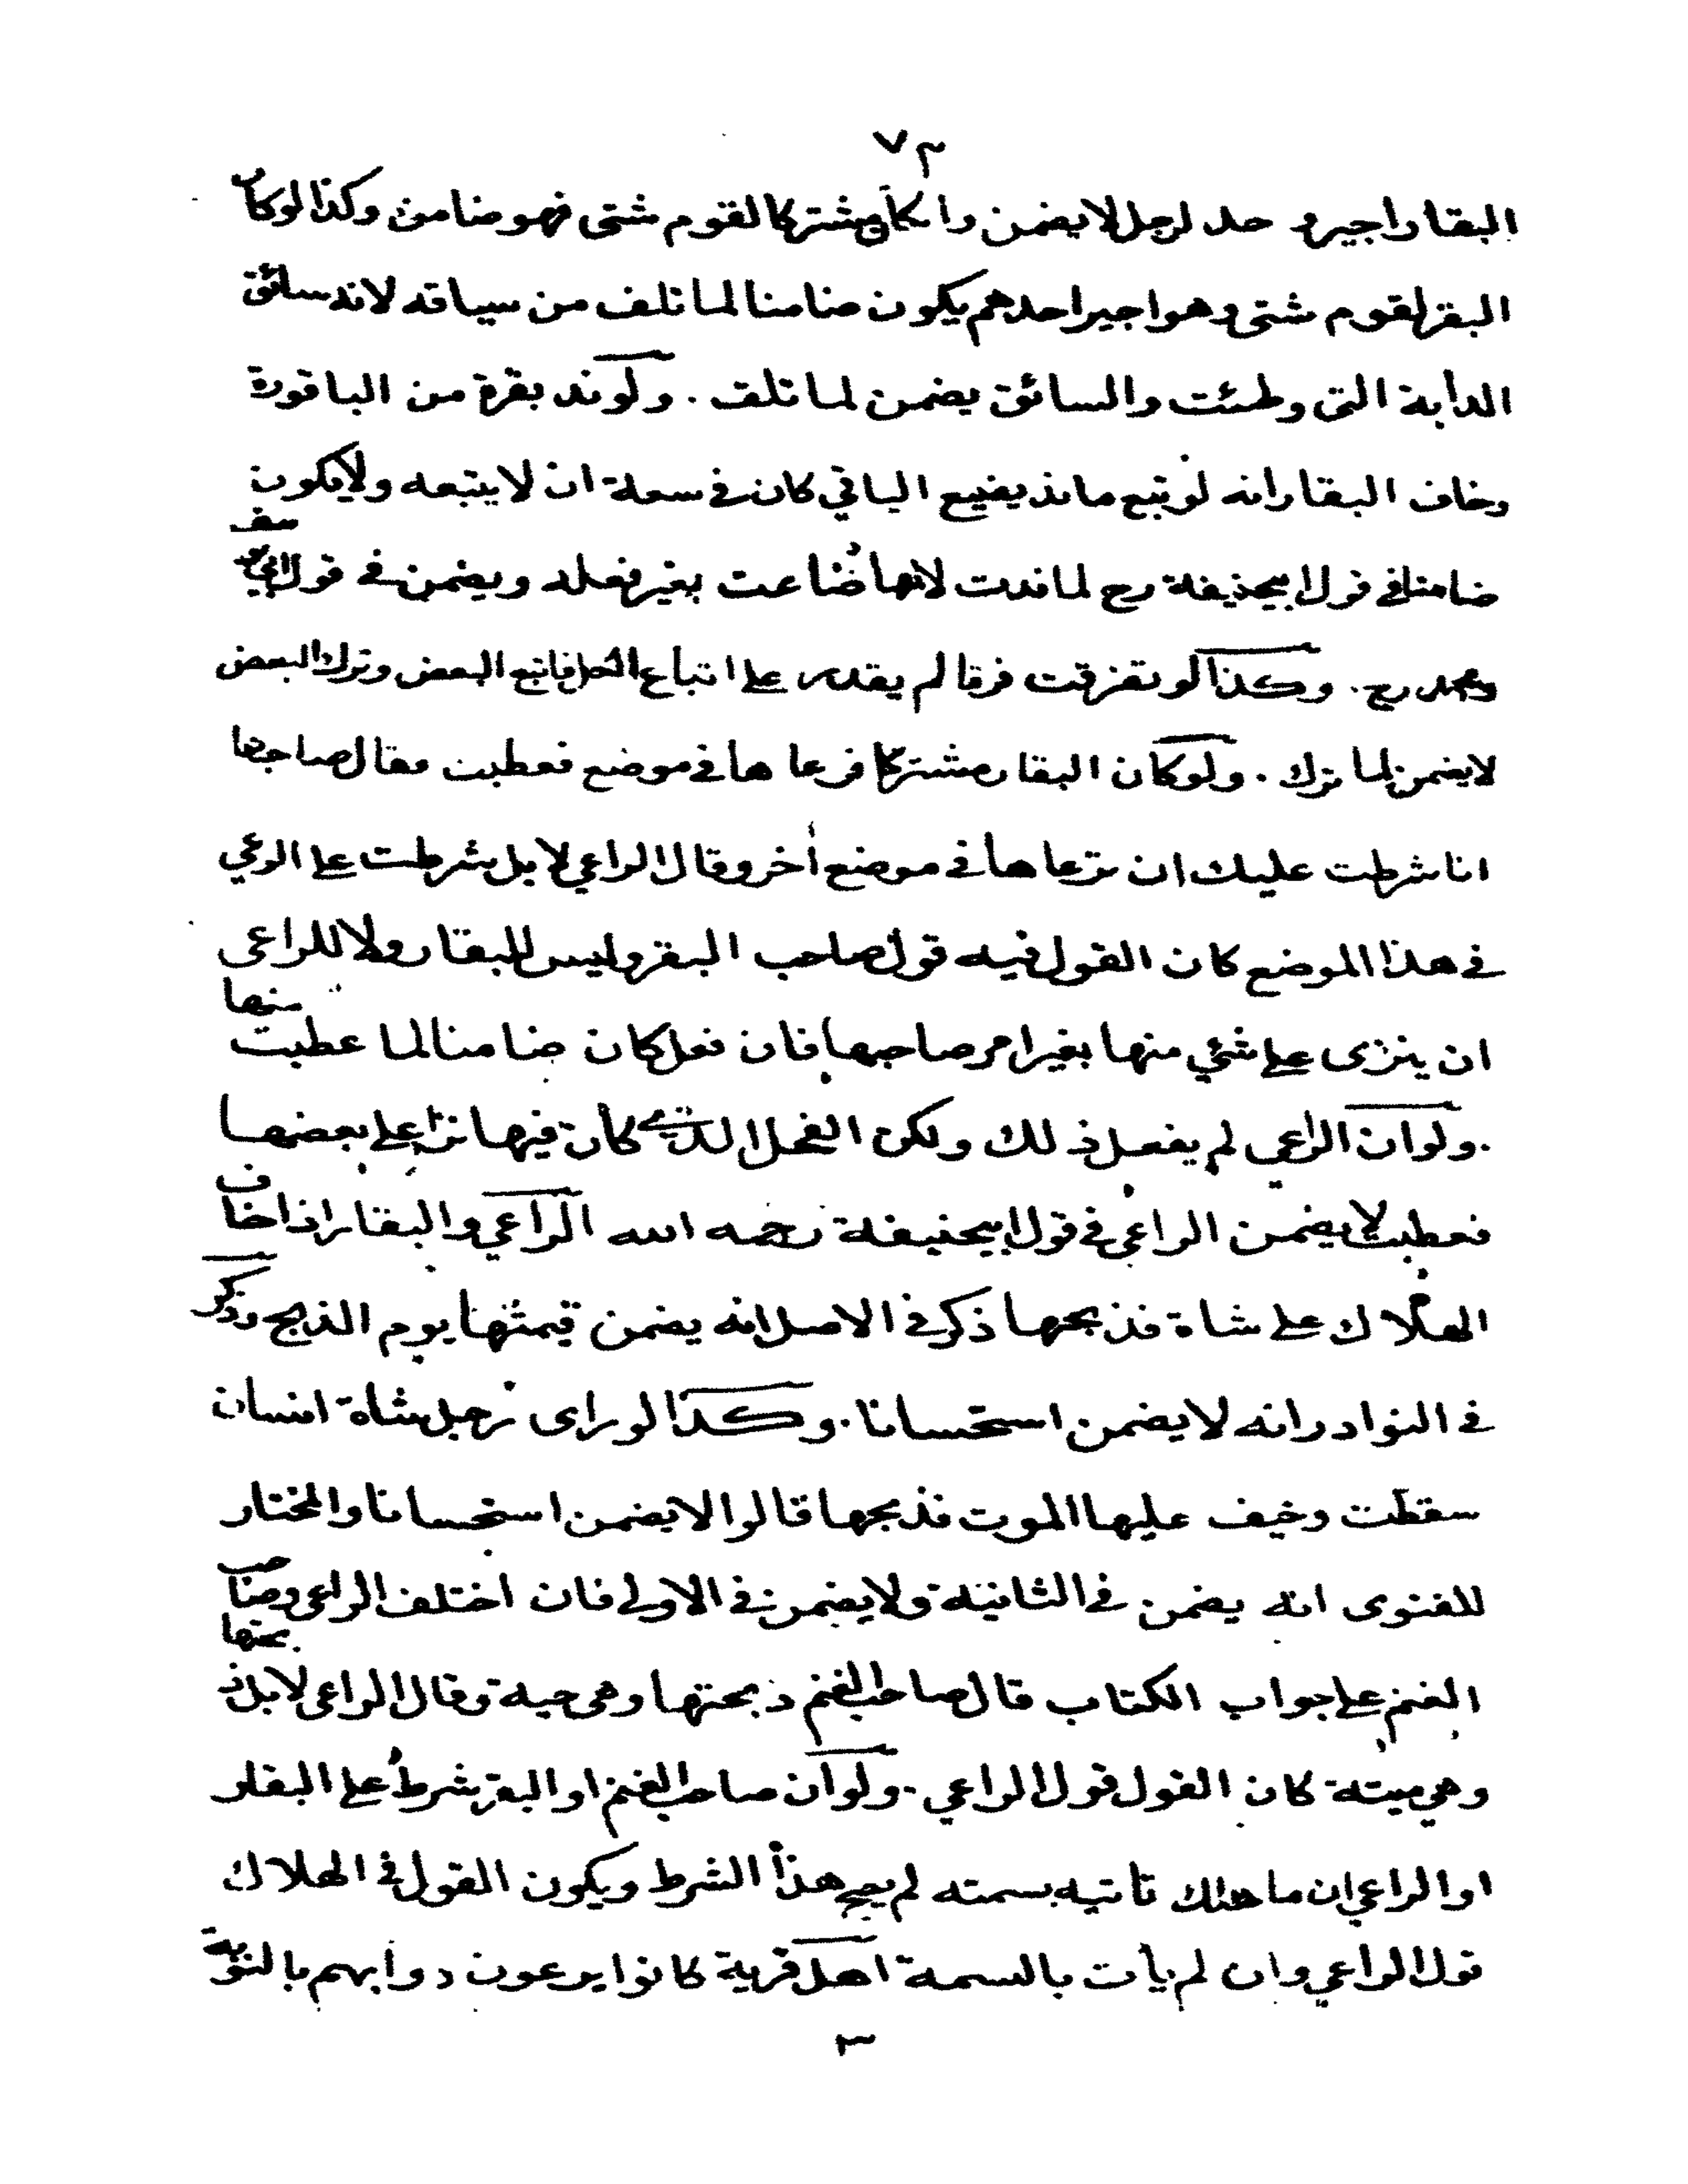 ٧٣
البقار اجير و حد لرجل لا يضمن وان كان مشتركا لقوم شتى فهو ضامن وكذا لو كان
البقر لقوم شتى وهو اجير احدهم يكون ضامنا لما تلف من سياقه لانه سائق
الدابة التى وطئت والسائق يضمن لما تلف . ولو ند بقرة من الباقورة
وخاف البقار انه لو تبع ماند يضيع الباقي كان في سعة ان لا يتبعه ولا يكون
ضامنا في قول ابيحنيفة رح لما ندت لانها ضاعت بغير فعله ويضمن في قول ابي يوسف
ومحمد رح . وكذا لو تفرقت فرقا لم يقدر على اتباع الكل فاتبع البعض وترك البعض
لا يضمن لما ترك . ولو كان البقار مشتركا فرعا ها في موضع فعطبت فقال صاحبها
انا شرطت عليك ان ترعا ها في موضع أخر وقال الراعي لا بل شرطت على الرعي
في هذا الموضع كان القول فيه قول صاحب البقر وليس للبقار ولا للراعى
ان ينزى على شئي منها بغير امر صاحبها فان فعل كان ضامنا لما عطبت منها
. ولو ان الراعي لم يفعل ذلك ولكن الفحل الذي كان فيها نزا على بعضها
فعطبت لا يضمن الراعي في قول ابيحنيفة رحمه الله الراعي والبقار اذا خاف
الهلاك على شاة فذبحها ذكر في الاصل انه يضمن قيمتها يوم الذبح وذكر
في النوادر انه لا يضمن استحسانا . وكذا لو راى رجل شاة انسان
سقطت وخيف عليها الموت فذبحها قالوا لا يضمن استحسانا والمختار
للفتوى انه يضمن في الثانية ولا يضمن في الاولى فان اختلف الراعى وصاحب
الغنم على جواب الكتاب قال صاحب الغنم ذبحتها وهى حية وقال الراعى لا بل ذبحتها
وهي ميتة كان القول قول الراعي . ولو ان صاحب الغنم او البقر شرط على البقار
او الراعي ان ما هلك تأتيه بسمته لم يصح هذا الشرط ويكون القول في الهلاك
قول الراعي وان لم يأت بالسمة اهل قرية كانوا يرعون دوابهم بالنوبة